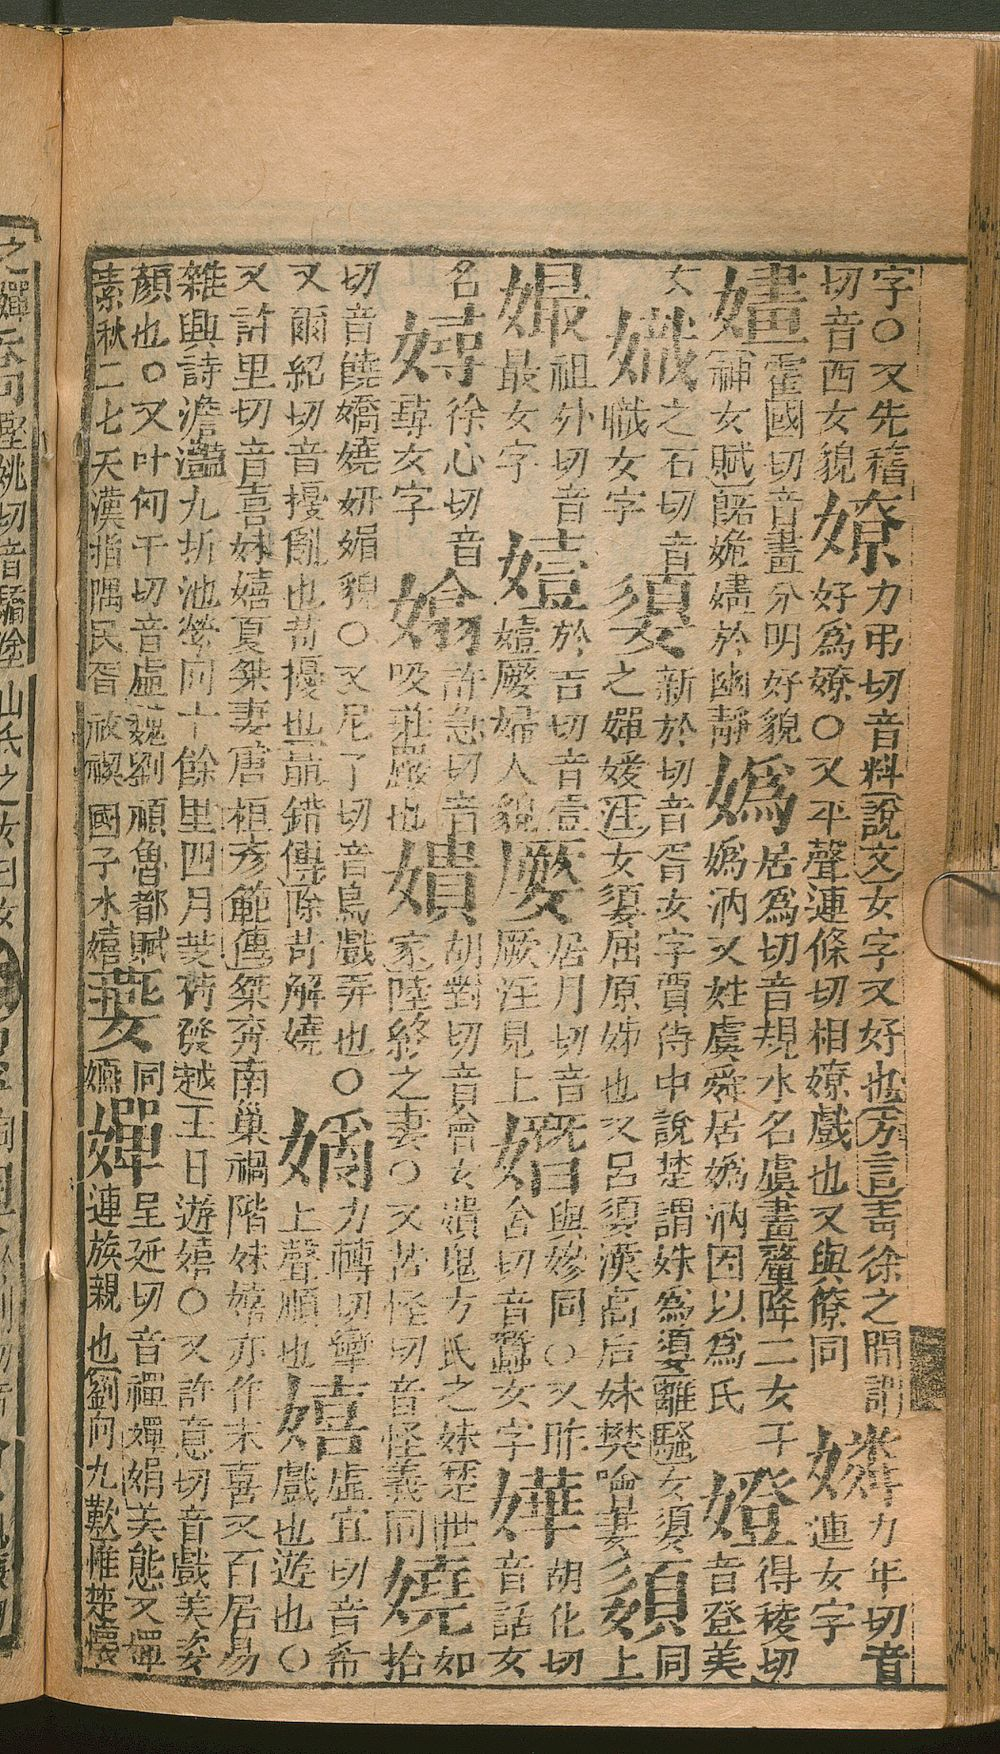 字○又先稽
切音西女貌
嫽
力弔切音料說文女字又好也方言靑徐之間謂
好為嫽○又平聲連條切相嫽戲也又與僚同
嫾
力年切音
連女字
嫿
霍國切音畫分明好貌
神女賦既姽嫿於幽靜
嬀
居為切音規水名虞書釐降二女于
嬀汭又姓虞舜居嬀汭因以為氏
嬁
得稜切
音登美
女
嬂
之石切音
職女字
嬃
新於切音胥女字賈侍中說楚謂姊為嬃離騷女嬃
之嬋媛注女嬃屈原姊也又呂須漢高后妹樊噲妻
同
上
祖外切音
最女字
嬄
於吉切音壹
嬄嬮婦人貌
居月切音
厥注見上
與嬸同○又昨
含切音蠶女字
嬅
胡化切
音話女
名
徐心切音
尋女字
嬆
許急切音
吸莊嚴也
嬇
胡對切音會女嬇鬼方氏之妹楚世
家陸終之妻○又苦怪切音怪義同
嬈
如
切音饒嬌嬈妍媚貌○又尼了切音鳥戲弄也○
又爾紹切音擾亂也苛擾也前鼂錯傳除苛解嬈
力轉切孌
上聲順也
嬉
虛宜切音希
戲也遊也○
又許里切音喜妹嬉夏桀妻唐桓彥範傳桀奔南巢禍階妹嬉亦作末喜又白居易
雜興詩澹灩九折池縈回十餘里四月芰荷發越王日遊嬉○又許意切音戲美姿
顏也○又叶匈干切音虛魏劉禎魯都賦
素秋二七天漢指隅民胥祓禊國子水嬉
嬊
同
嬿
嬋
呈延切音禪嬋娟美態又嬋
連族親也劉向九歎惟楚懷